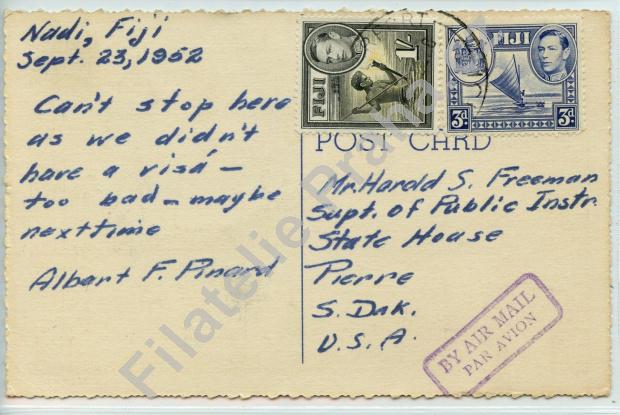 Nadi, Fiji
Sept. 23, 1952
Can't stop here
as we didn't
have a visá -
too bad - maybe
next time
Albert F. Pinard
FIJI
1/-
FIJI
3d
3d
POST CARD
Mr. Harold S. Freeman
Supt. of Public Instr.
State House
Pierre
S. Dak.
U.S.A.
BY AIR MAIL
PAR AVION
Filatelie Praha